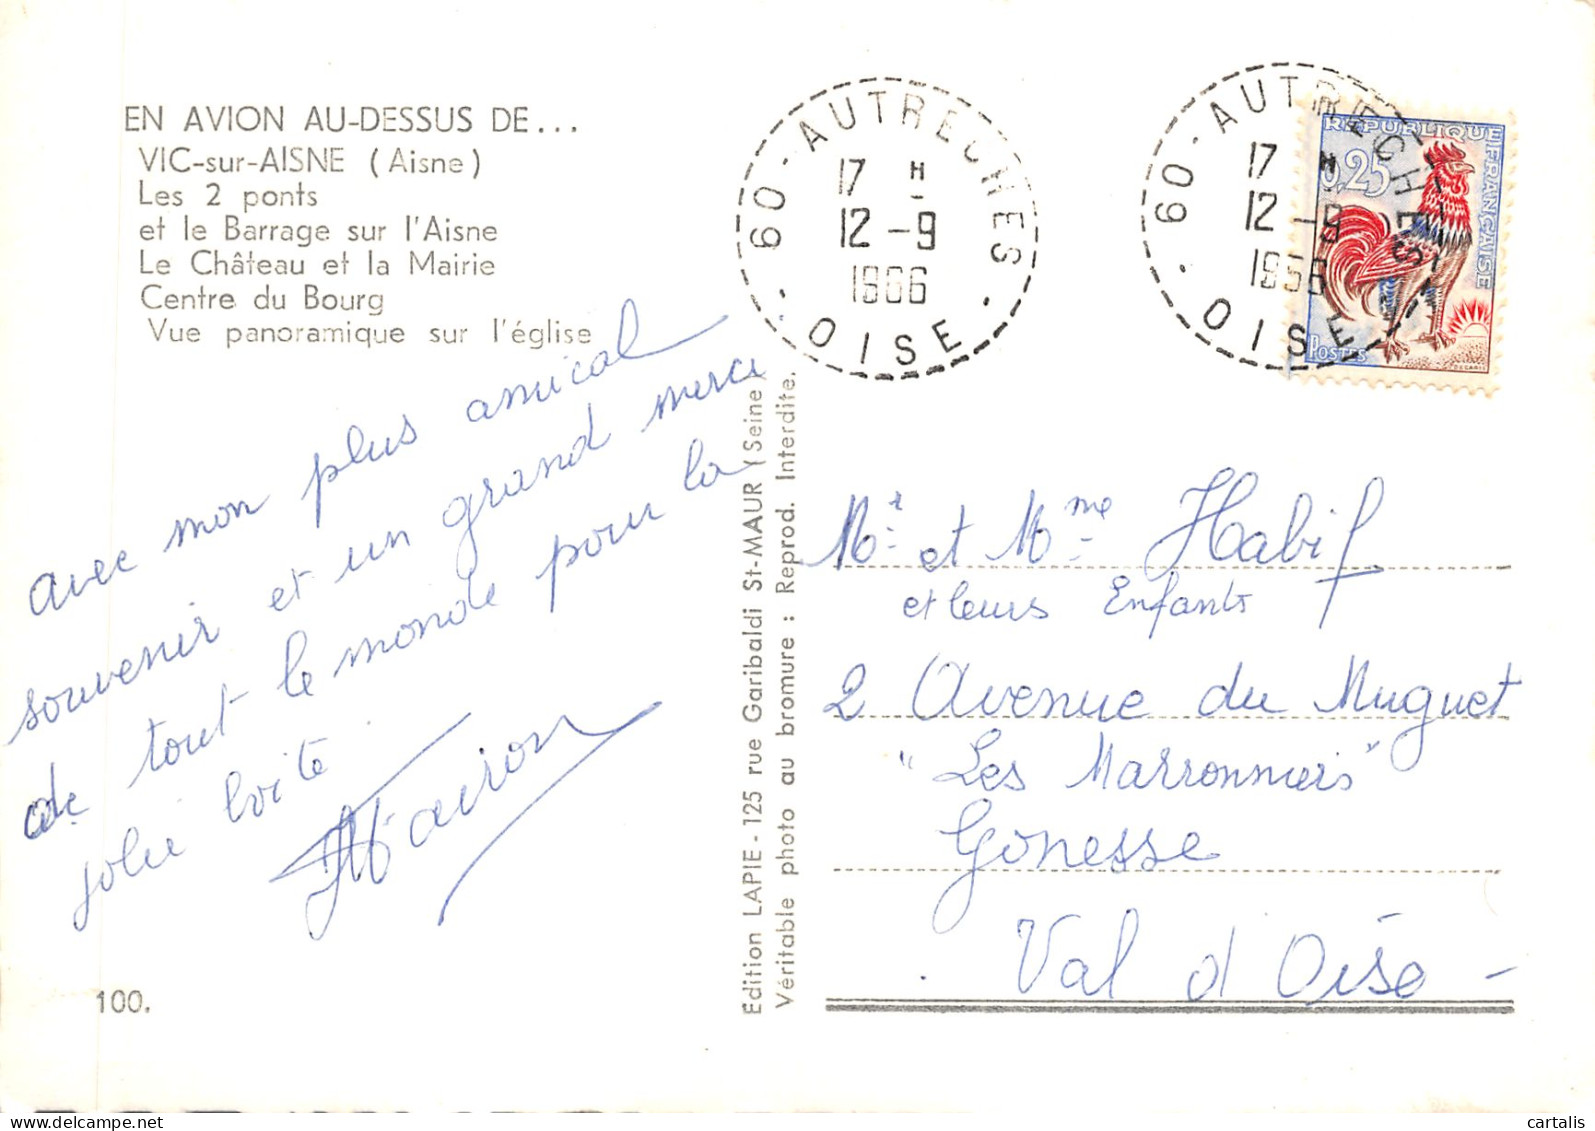 EN AVION AU-DESSUS DE...
VIC-sur-AISNE (Aisne)
Les 2 ponts
et le Barrage sur l'Aisne
Le Château et la Mairie
Centre du Bourg
Vue panoramique sur l'église
avec mon plus amical
souvenir et un grand merci
de tout le monde pour la
jolie boite
100.
Edition LAPIE - 125 rue Garibaldi St-MAUR (Seine)
Véritable photo au bromure : Reprod. Interdite.
60 - AUTRECHES
17 H
12 - 9
1966
OISE
60 - AUTRECHES
17 H
12 - 9
1966
OISE
REPUBLIQUE FRANÇAISE
0,25
POSTES
DECARIS
Mr et Mme Habif
et leurs Enfants
2 Avenue du Muguet
"Les Marronniers"
Gonesse
Val d'Oise -
cartalis